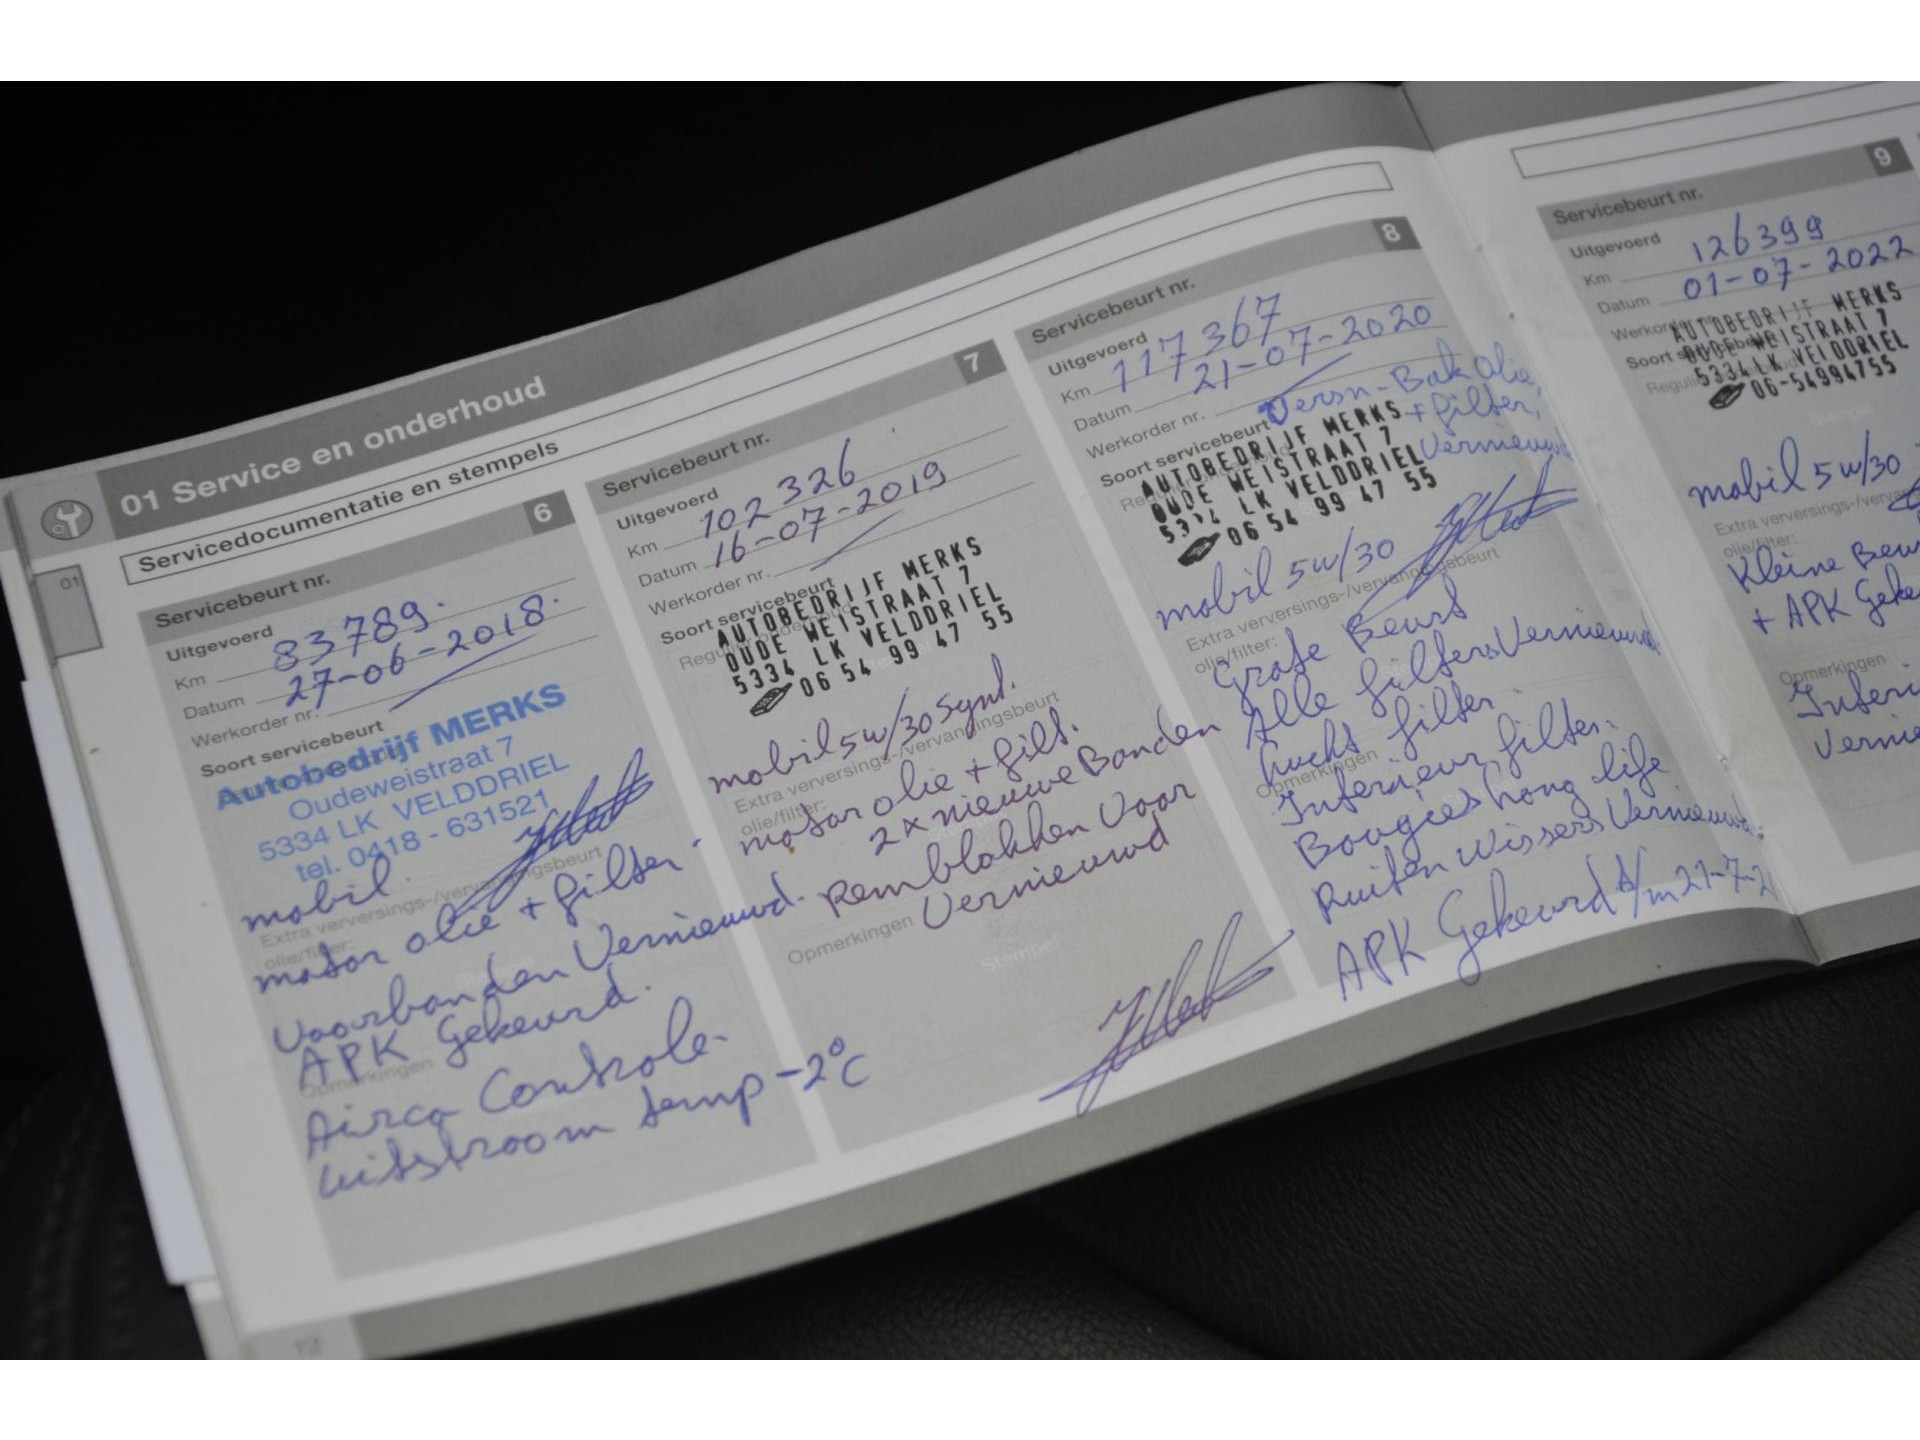 01 Service en onderhoud
Servicedocumentatie en stempels
01
Servicebeurt nr. 6
Uitgevoerd
Km 83789.
Datum 27-06-2018.
Werkorder nr.
Soort servicebeurt
Autobedrijf MERKS
Oudeweistraat 7
5334 LK VELDDRIEL
tel. 0418 - 631521
mobil.
Extra verversings-/vervangingsbeurt
olie/filter:
motor olie + filter.
Voorbanden Vernieuwd.
APK Gekeurd.
Opmerkingen
Airco Controle.
uitstroom temp -2°C
12
Servicebeurt nr. 7
Uitgevoerd
Km 102326
Datum 16-07-2019
Werkorder nr.
Soort servicebeurt
AUTOBEDRIJF MERKS
OUDE WEISTRAAT 7
5334 LK VELDDRIEL
06 54 99 47 55
mobil 5w/30 Synt.
Extra verversings-/vervangingsbeurt
olie/filter:
motor olie + filt.
2x nieuwe Banden
Remblokken Voor
Vernieuwd
Opmerkingen
Stempel
Servicebeurt nr. 8
Uitgevoerd
Km 117367
Datum 21-07-2020
Werkorder nr.
Versn-Bak Olie
+ filter
Vernieuwd
Soort servicebeurt
AUTOBEDRIJF MERKS
OUDE WEISTRAAT 7
5334 LK VELDDRIEL
06 54 99 47 55
mobil 5w/30
Extra verversings-/vervangingsbeurt
olie/filter:
Grote Beurt
Alle filters Vernieuwd.
Lucht filter.
Opmerkingen
Interieur filter.
Bougies Long life
Ruiten wissers Vernieuwd.
APK Gekeurd 21-7-2
Servicebeurt nr. 9
Uitgevoerd
Km 126399
Datum 01-07-2022
AUTOBEDRIJF MERKS
OUDE WEISTRAAT 7
5334 LK VELDDRIEL
06-54994755
Stempel
mobil 5w/30
Extra verversings-/verva
olie/filter:
Kleine Beur
+ APK Geke
Opmerkingen
Interi
Vernie